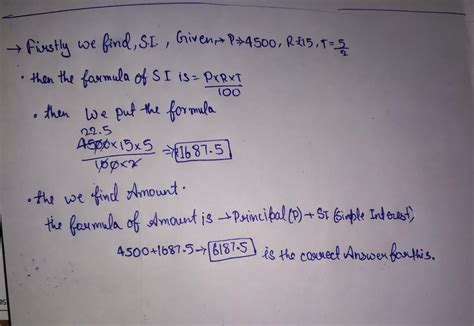 → Firstly we find, S.I., Given,→ P→4500, R→15, T=5/2
• then the formula of SI is = P×R×T/100
• then we put the formula
22.5
4500×15×5/100×2 ⇒ 1687.5
• the we find Amount.
the formula of Amount is → Principal(P) + SI (Simple Interest)
4500+1687.5→ 6187.5 is the correct Answer for this.